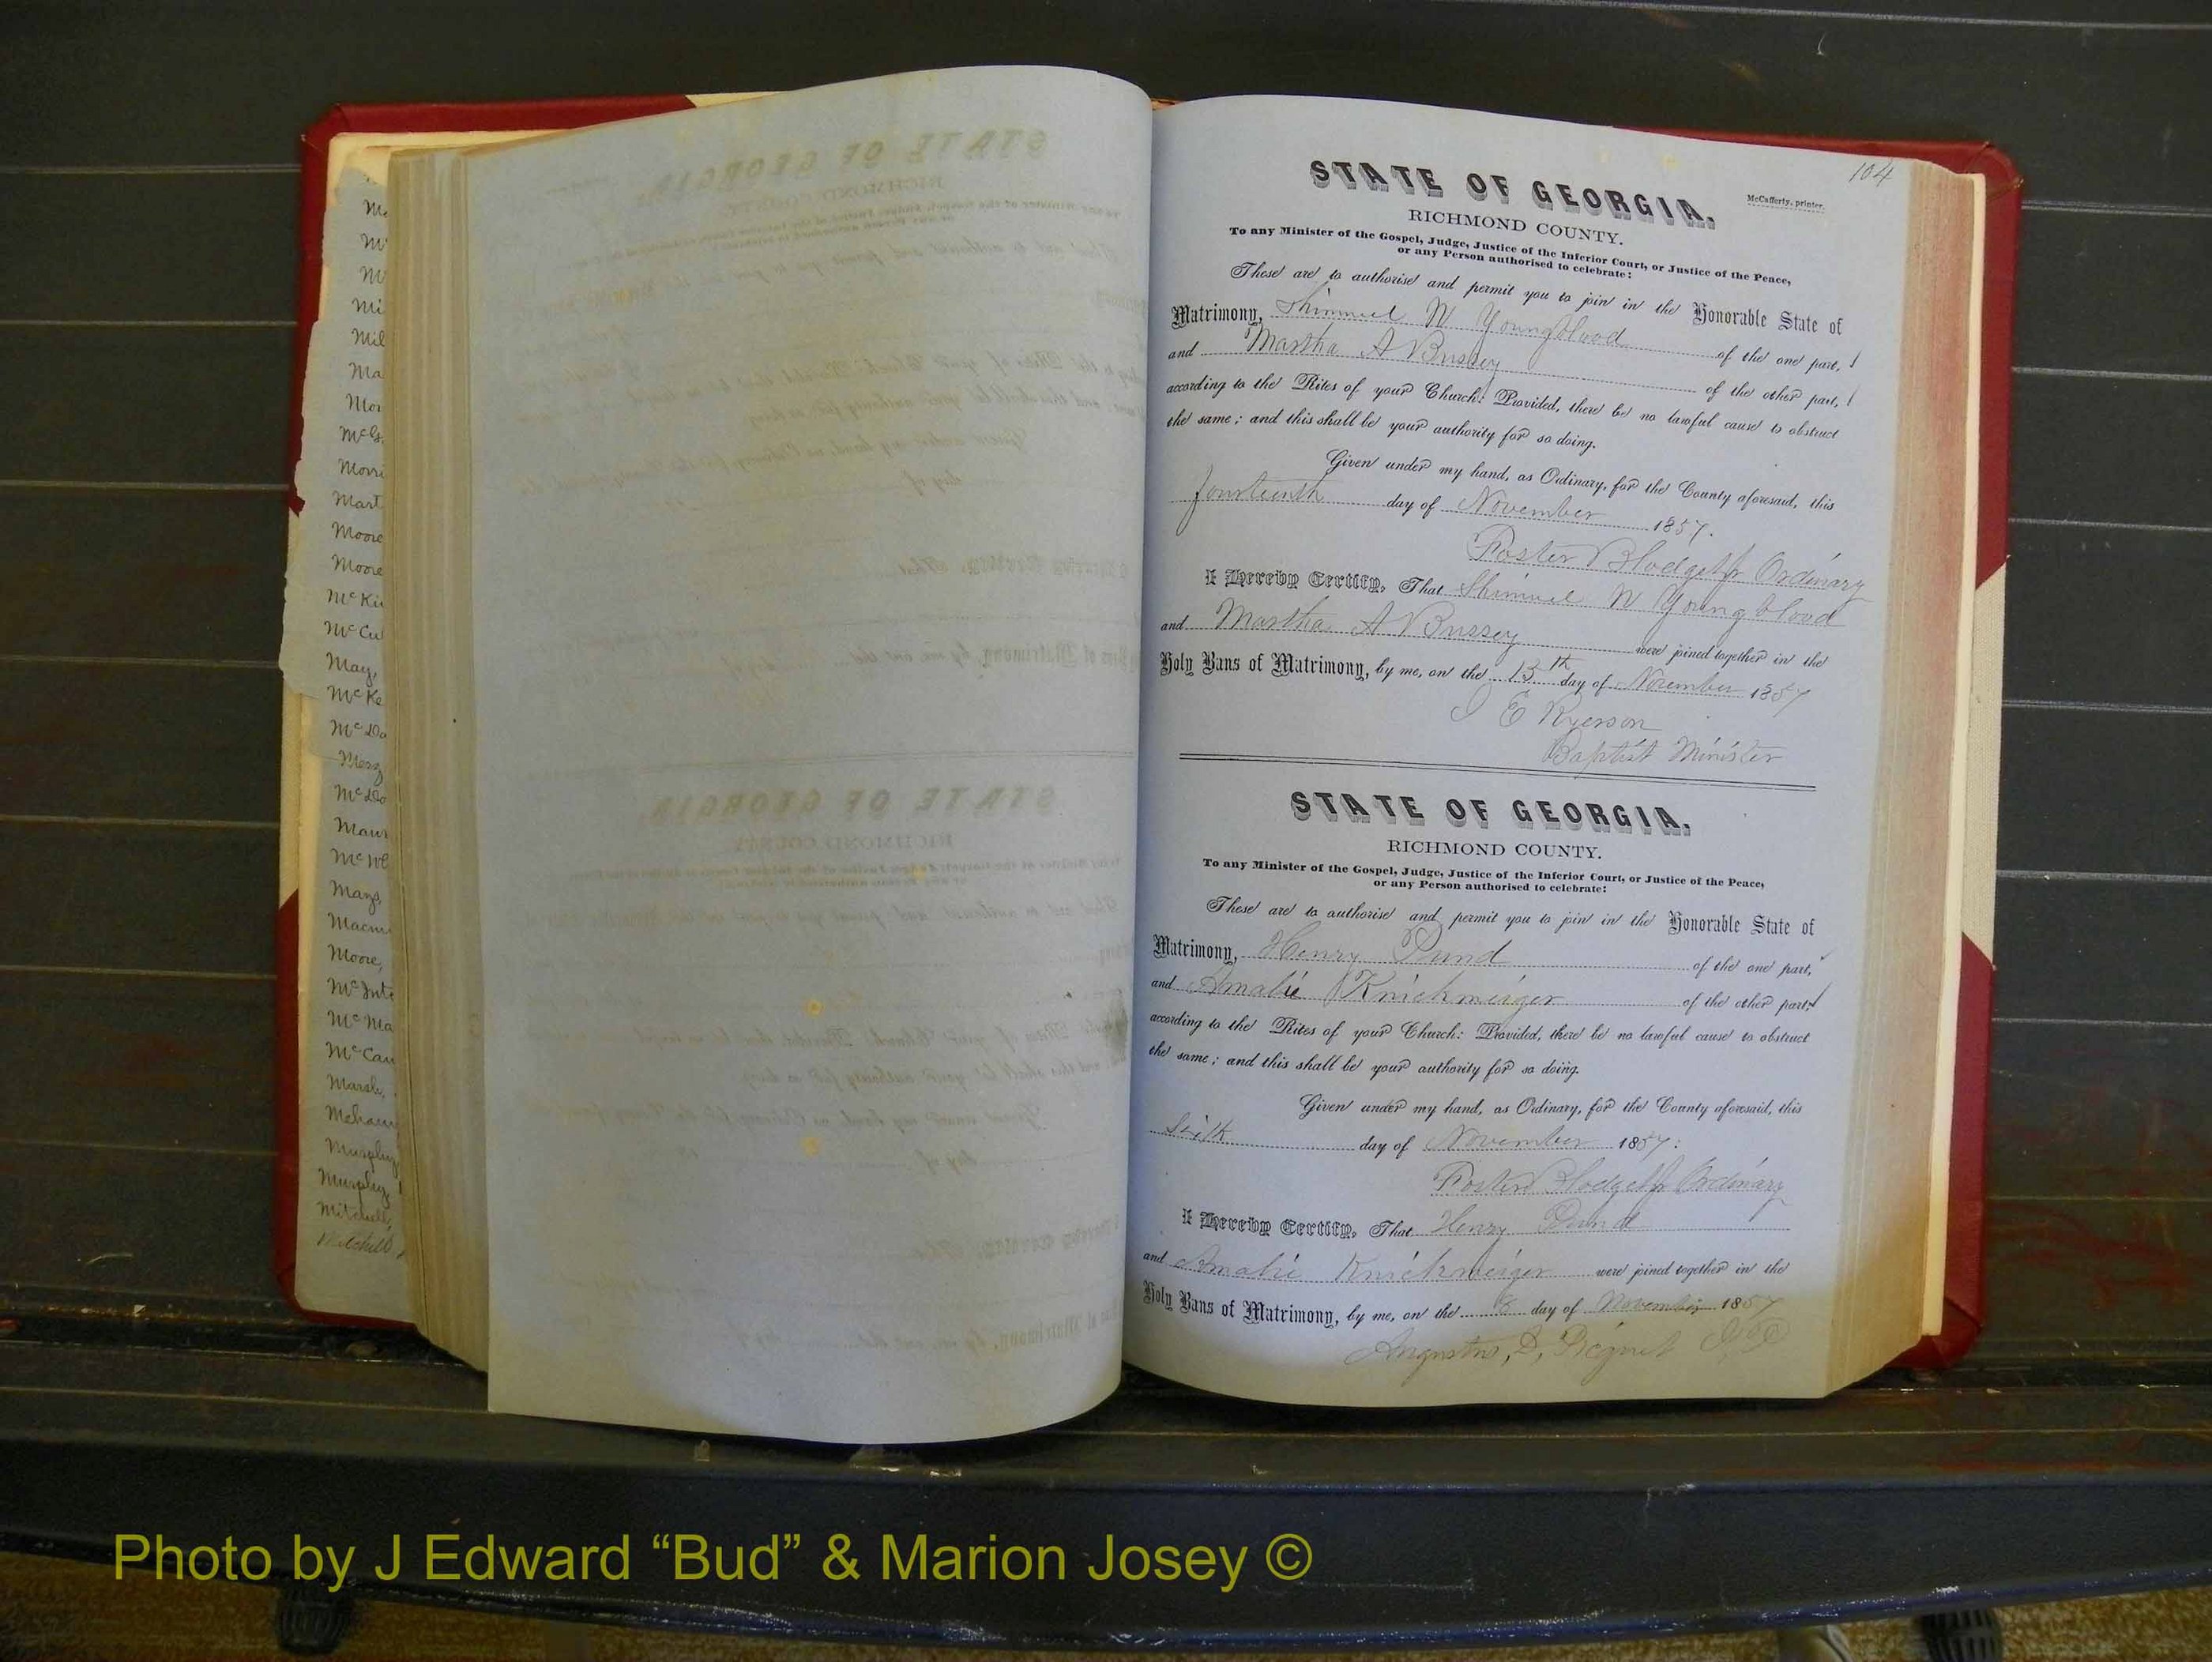 Me
M
M
Mi
Mil
Ma
Mor
McG
Morri
Mart
Moore
Moore
McKi
McCu
May,
McKe
McDa
Merg
McDo
Maur
McWe
Mays,
Macm
Moore,
McInt
McMa
McCau
Marsh,
Meham
Murphy
Murphy,
Mitchell,
Mitchell
104
STATE OF GEORGIA.
McCafferty, printer.
RICHMOND COUNTY.
To any Minister of the Gospel, Judge, Justice of the Inferior Court, or Justice of the Peace,
or any Person authorised to celebrate:
These are to authorise and permit you to join in the Honorable State of
Matrimony, Shimuel W Youngblood of the one part,
and Martha A Bussey of the other part,
according to the Rites of your Church: Provided, there be no lawful cause to obstruct
the same; and this shall be your authority for so doing.
Given under my hand, as Ordinary, for the County aforesaid, this
fourteenth day of November 1857.
Foster Blodget jr Ordinary
I Hereby Certify, That Shimuel W Youngblood
and Martha A Bussey were joined together in the
Holy Bans of Matrimony, by me, on the 15th day of November 1857
E Ryerson
Baptist Minister
STATE OF GEORGIA.
RICHMOND COUNTY.
To any Minister of the Gospel, Judge, Justice of the Inferior Court, or Justice of the Peace,
or any Person authorised to celebrate:
These are to authorise and permit you to join in the Honorable State of
Matrimony, Henry Pund of the one part,
and Amalie Knickmeiger of the other part,
according to the Rites of your Church: Provided, there be no lawful cause to obstruct
the same; and this shall be your authority for so doing.
Given under my hand, as Ordinary, for the County aforesaid, this
Sixth day of November 1857:
Foster Blodget jr Ordinary
I Hereby Certify, That Henry Pund
and Amalie Knickmeiger were joined together in the
Holy Bans of Matrimony, by me, on the 8 day of November 1857
Augustus, D, Picquet
Photo by J Edward “Bud” & Marion Josey ©